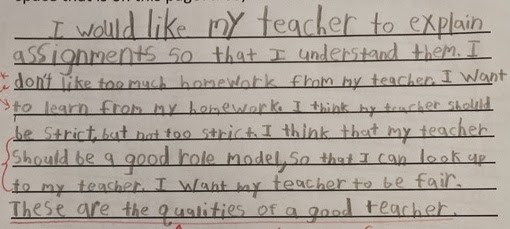 I would like my teacher to explain
assignments so that I understand them. I
don't like too much homework from my teacher. I want
to learn from my homework. I think my teacher should
be strict, but not too strict. I think that my teacher
should be a good role model, so that I can look up
to my teacher. I want my teacher to be fair.
These are the qualities of a good teacher.